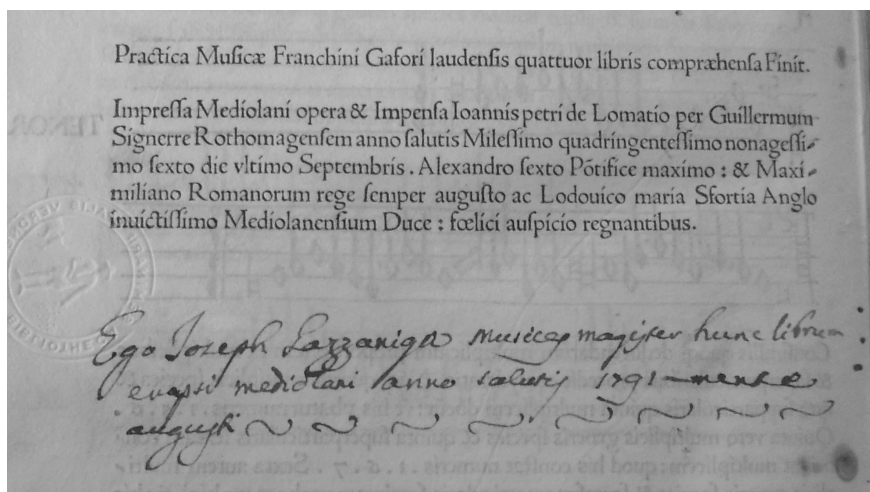 Practica Muſicæ Franchini Gafori laudenſis quattuor libris compræhenſa Finit.
Impreſſa Mediolani opera & Impenſa Ioannis petri de Lomatio per Guillermum
Signerre Rothomagenſem anno ſalutis Mileſſimo quadringenteſſimo nonageſſi-
mo ſexto die vltimo Septembris. Alexandro ſexto Põtifice maximo: & Maxi-
miliano Romanorum rege ſemper auguſto ac Lodouico maria Sfortia Anglo
inuictiſſimo Mediolanenſium Duce: fœlici auſpicio regnantibus.
Ego Joseph Lazzaniga musicæ magister hunc librum
mediolani anno salutis 1791 mense
augusti